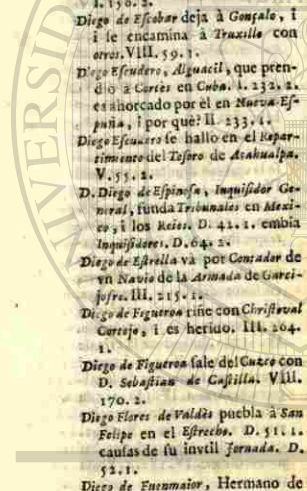 I. 150. 2.
Diego de Escobar deja à Gonçalo, i
i se encamina à Truxillo con
otros. VIII. 59. 1.
Diego Escudero, Alguacil, que pren-
diò a Cortès en Cuba. I. 232. 2.
es ahorcado por èl en Nueva Es-
paña, i por què? II. 233. 1.
Diego Escudero se hallo en el Repar-
timiento del Tesoro de Atahualpa.
V. 55. 2.
D. Diego de Espinosa, Inquisidor Ge-
neral, funda Tribunales en Mexi-
co, i los Reies. D. 42. 1. embia
Inquisidores. D. 64. 2.
Diego de Estrella và por Contador de
vn Navio de la Armada de Garci-
jofre. III. 215. 1.
Diego de Figueroa riñe con Christoval
Cortejo, i es herido. III. 264.
1.
Diego de Figueroa sale del Cuzco con
D. Sebastian de Castilla. VIII.
170. 2.
Diego Flores de Valdès puebla à San
Felipe en el Estrecho. D. 51. 1.
causas de su invtil Jornada. D.
52. 1.
Diego de Fuenmaior, Hermano de